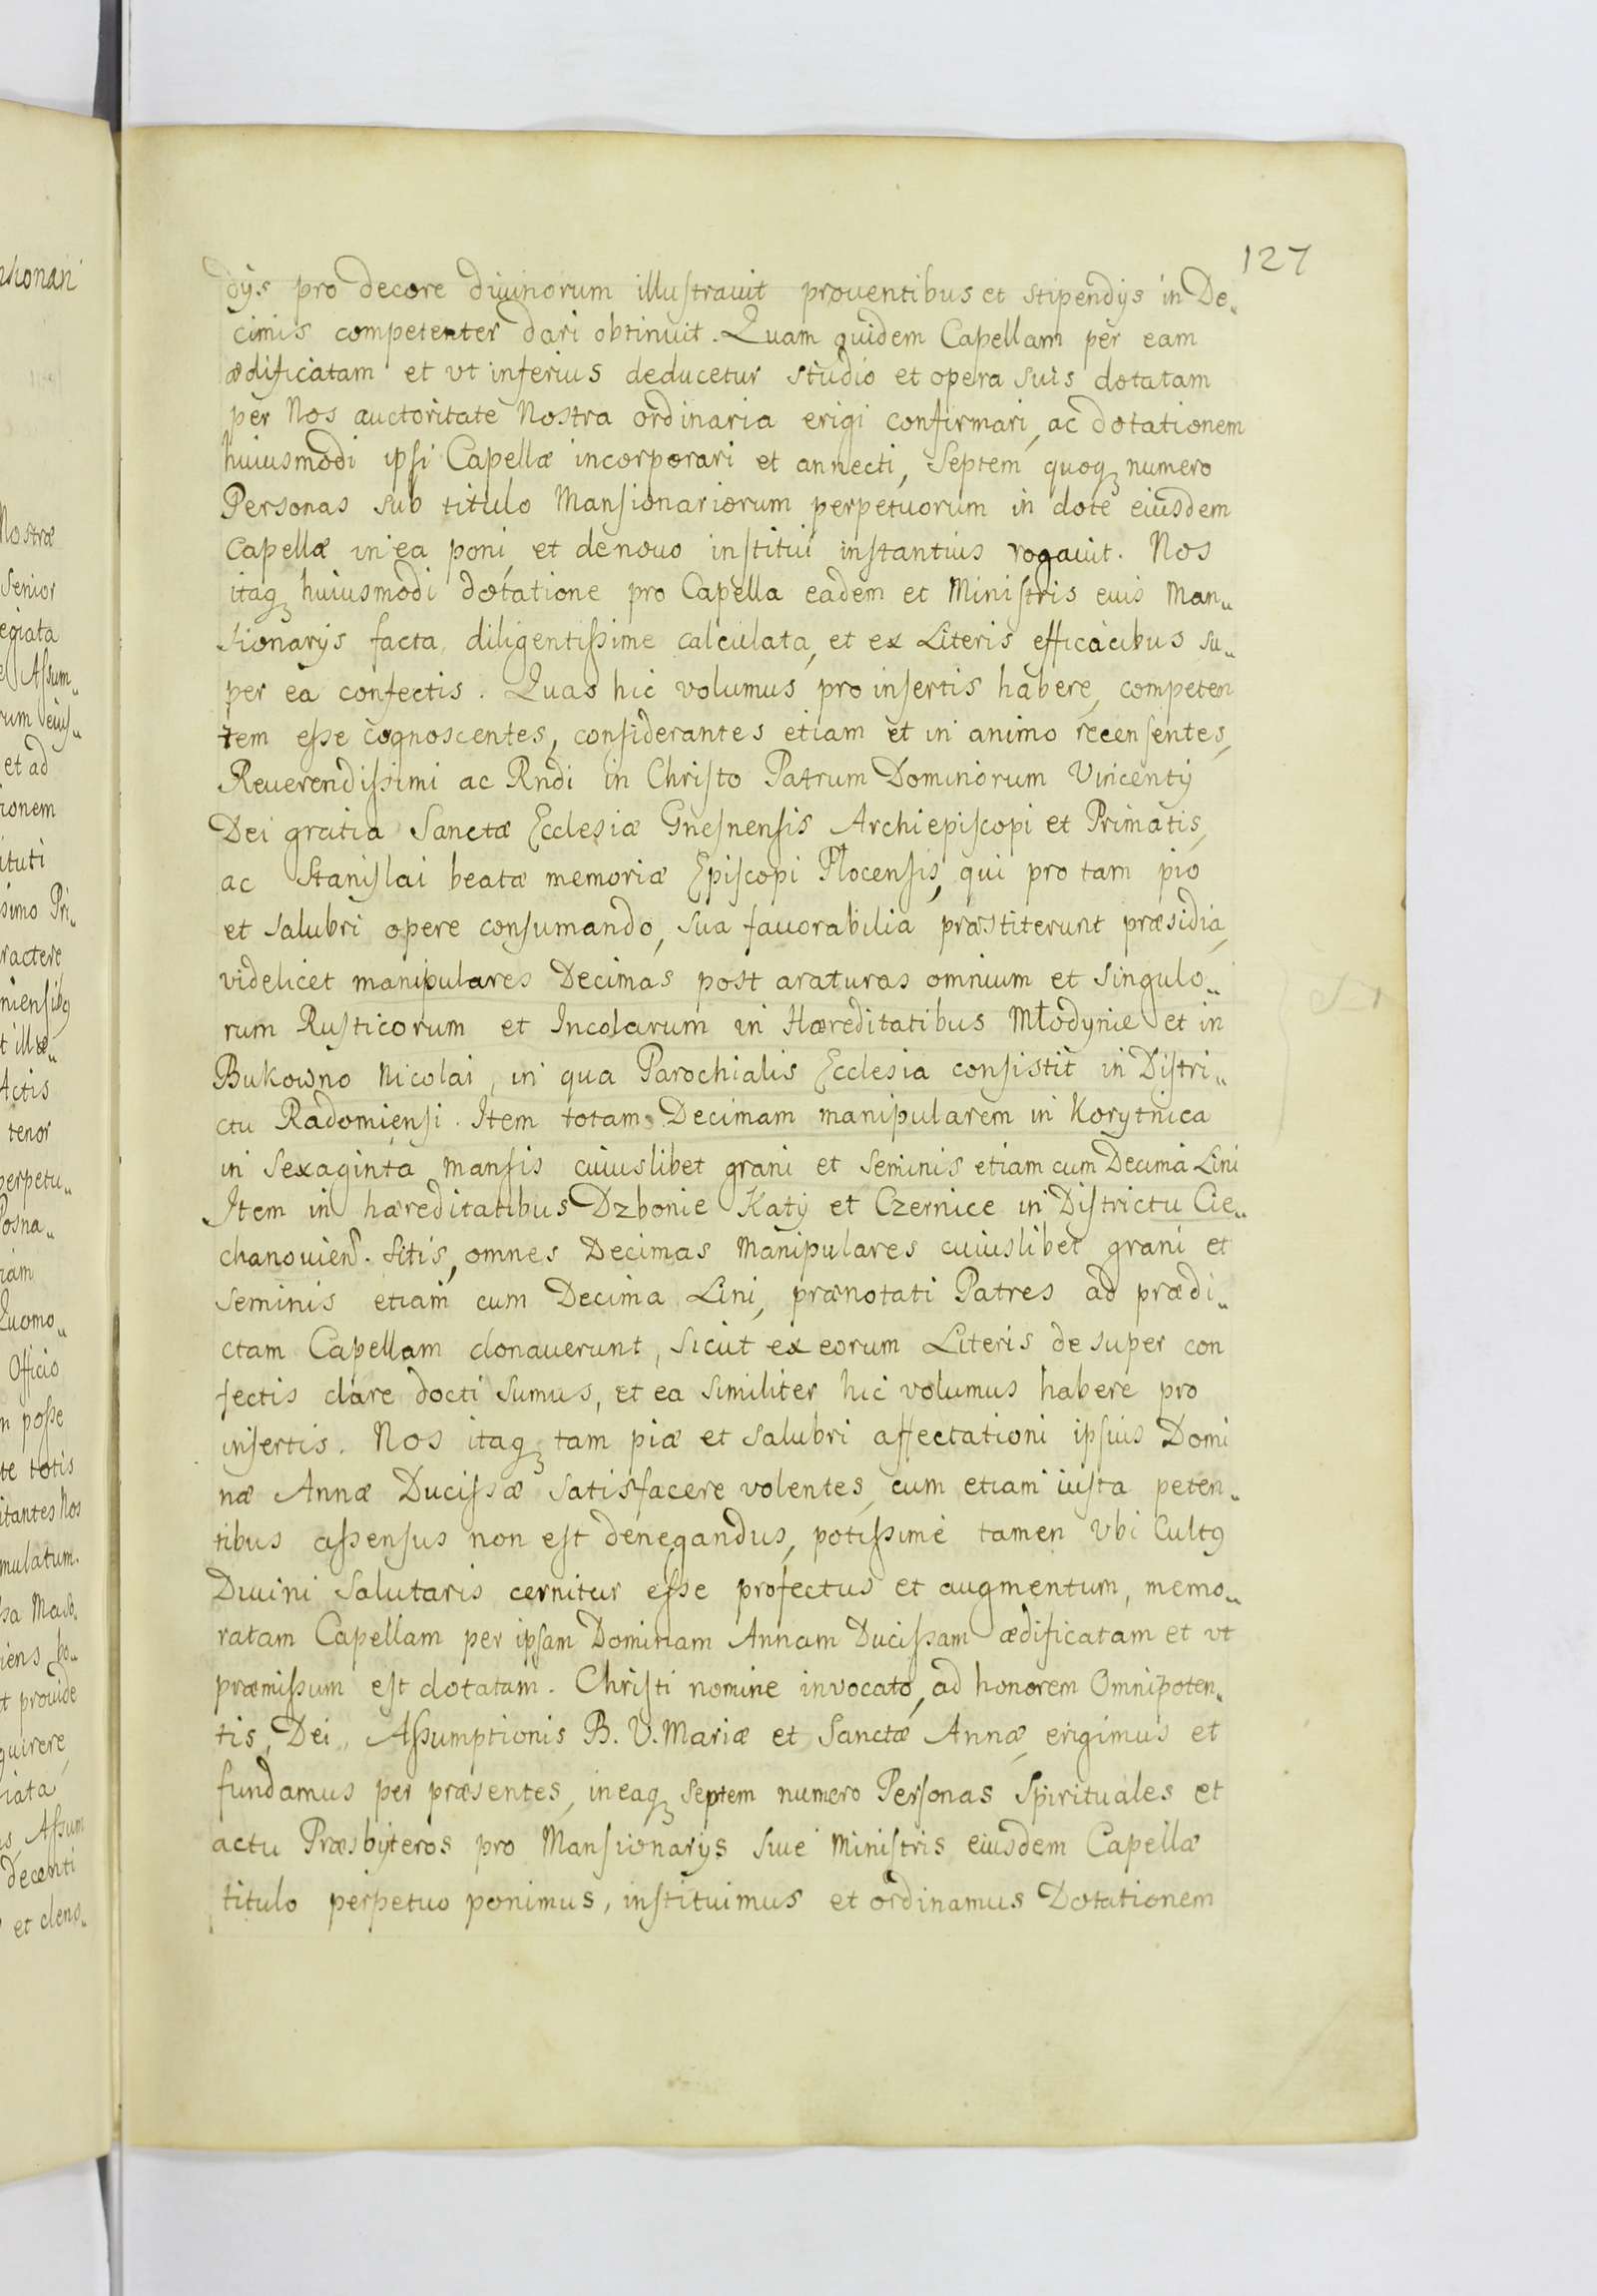 127
dijs pro decore diuinorum illustrauit prouentibus et stipendijs in De„
cimis competenter dari obtinuit. Quam quidem Capellam per eam
ædificatam et vt inferius deducetur studio et opera suis dotatam
per Nos auctoritate Nostra ordinaria erigi confirmari, ac dotationem
huiusmodi ipsi Capellæ incorporari et annecti, Septem quoq3 numero
Personas sub titulo Mansionariorum perpetuorum in dote eiusdem
Capellæ in ea poni, et denouo institui instantius rogauit. Nos
itaq3 huiusmodi dotatione pro Capella eadem et Ministris euis Man„
sionarijs facta diligentissime calculata, et ex Literis efficacibus su„
per ea confectis. Quas hic volumus pro insertis habere, competen
tem esse cognoscentes, considerantes etiam et in animo recensentes,
Reuerendissimi ac Rndi in Christo Patrum Dominorum Vincentij
Dei gratia Sanctæ Ecclesiæ Gnesnensis Archiepiscopi et Primatis,
ac Stanislai beatæ memoriæ Episcopi Płocensis, qui pro tam pio
et salubri opere consumando, sua fauorabilia præstiterunt præsidia,
videlicet manipulares Decimas post araturas omnium et singulo„
rum Rusticorum et Incolarum in Hæreditatibus Młodynie et in
Bukowno Nicolai, in qua Parochialis Ecclesia consistit in Distri„
ctu Radomiensi. Item totam Decimam manipularem in Korytnica
in sexaginta mansis cuiuslibet grani et seminis etiam cum Decima Lini
Item in hæreditatibus Dzbonie Katy et Czernice in Districtu Cie„
chanouiens. sitis, omnes Decimas Manipulares cuiuslibet grani et
seminis etiam cum Decima Lini, prænotati Patres ad prædi„
ctam Capellam donauerunt, sicut ex eorum Literis de super con
fectis clare docti sumus, et ea similiter hic volumus habere pro
insertis. Nos itaq3 tam piæ et salubri affectationi ipsius Domi
næ Annæ Ducissæ satisfacere volentes, cum etiam iusta peten„
tibus assensus non est denegandus, potissime tamen vbi Cult9
Diuini salutaris cernitur esse profectus et augmentum, memo„
ratam Capellam per ipsam Dominam Annam Ducissam ædificatam et vt
præmissum est dotatam. Christi nomine invocato, ad honorem Omnipoten„
tis Dei, Assumptionis B. V. Mariæ et Sanctæ Annæ, erigimus et
fundamus per præsentes, in eaq3 septem numero Personas Spirituales et
actu Præsbyteros pro Mansionarijs siue Ministris eiusdem Capellæ
titulo perpetuo ponimus, instituimus et ordinamus Dotationem